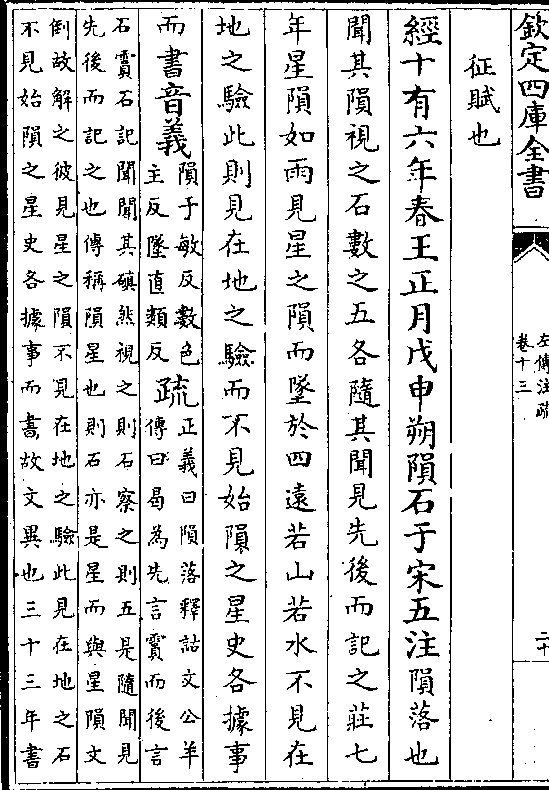 欽定四庫全書
左傳注疏
卷十三
二十
征賦也
經十有六年春王正月戊申朔隕石于宋五注隕落也
聞其隕視之石數之五各隨其聞見先後而記之莊七
年星隕如雨見星之隕而墜於四遠若山若水不見在
地之驗此則見在地之驗而不見始隕之星史各據事
而書音義
隕于敏反數色
主反墜直類反
疏
正義曰隕落釋詁文公羊
傳曰曷為先言霣而後言
石霣石記聞聞其磌然視之則石察之則五是隨聞見
先後而記之也傳稱隕星也則石亦是星而與星隕文
倒故解之彼見星之隕不見在地之驗此見在地之石
不見始隕之星史各據事而書故文異也三十三年書